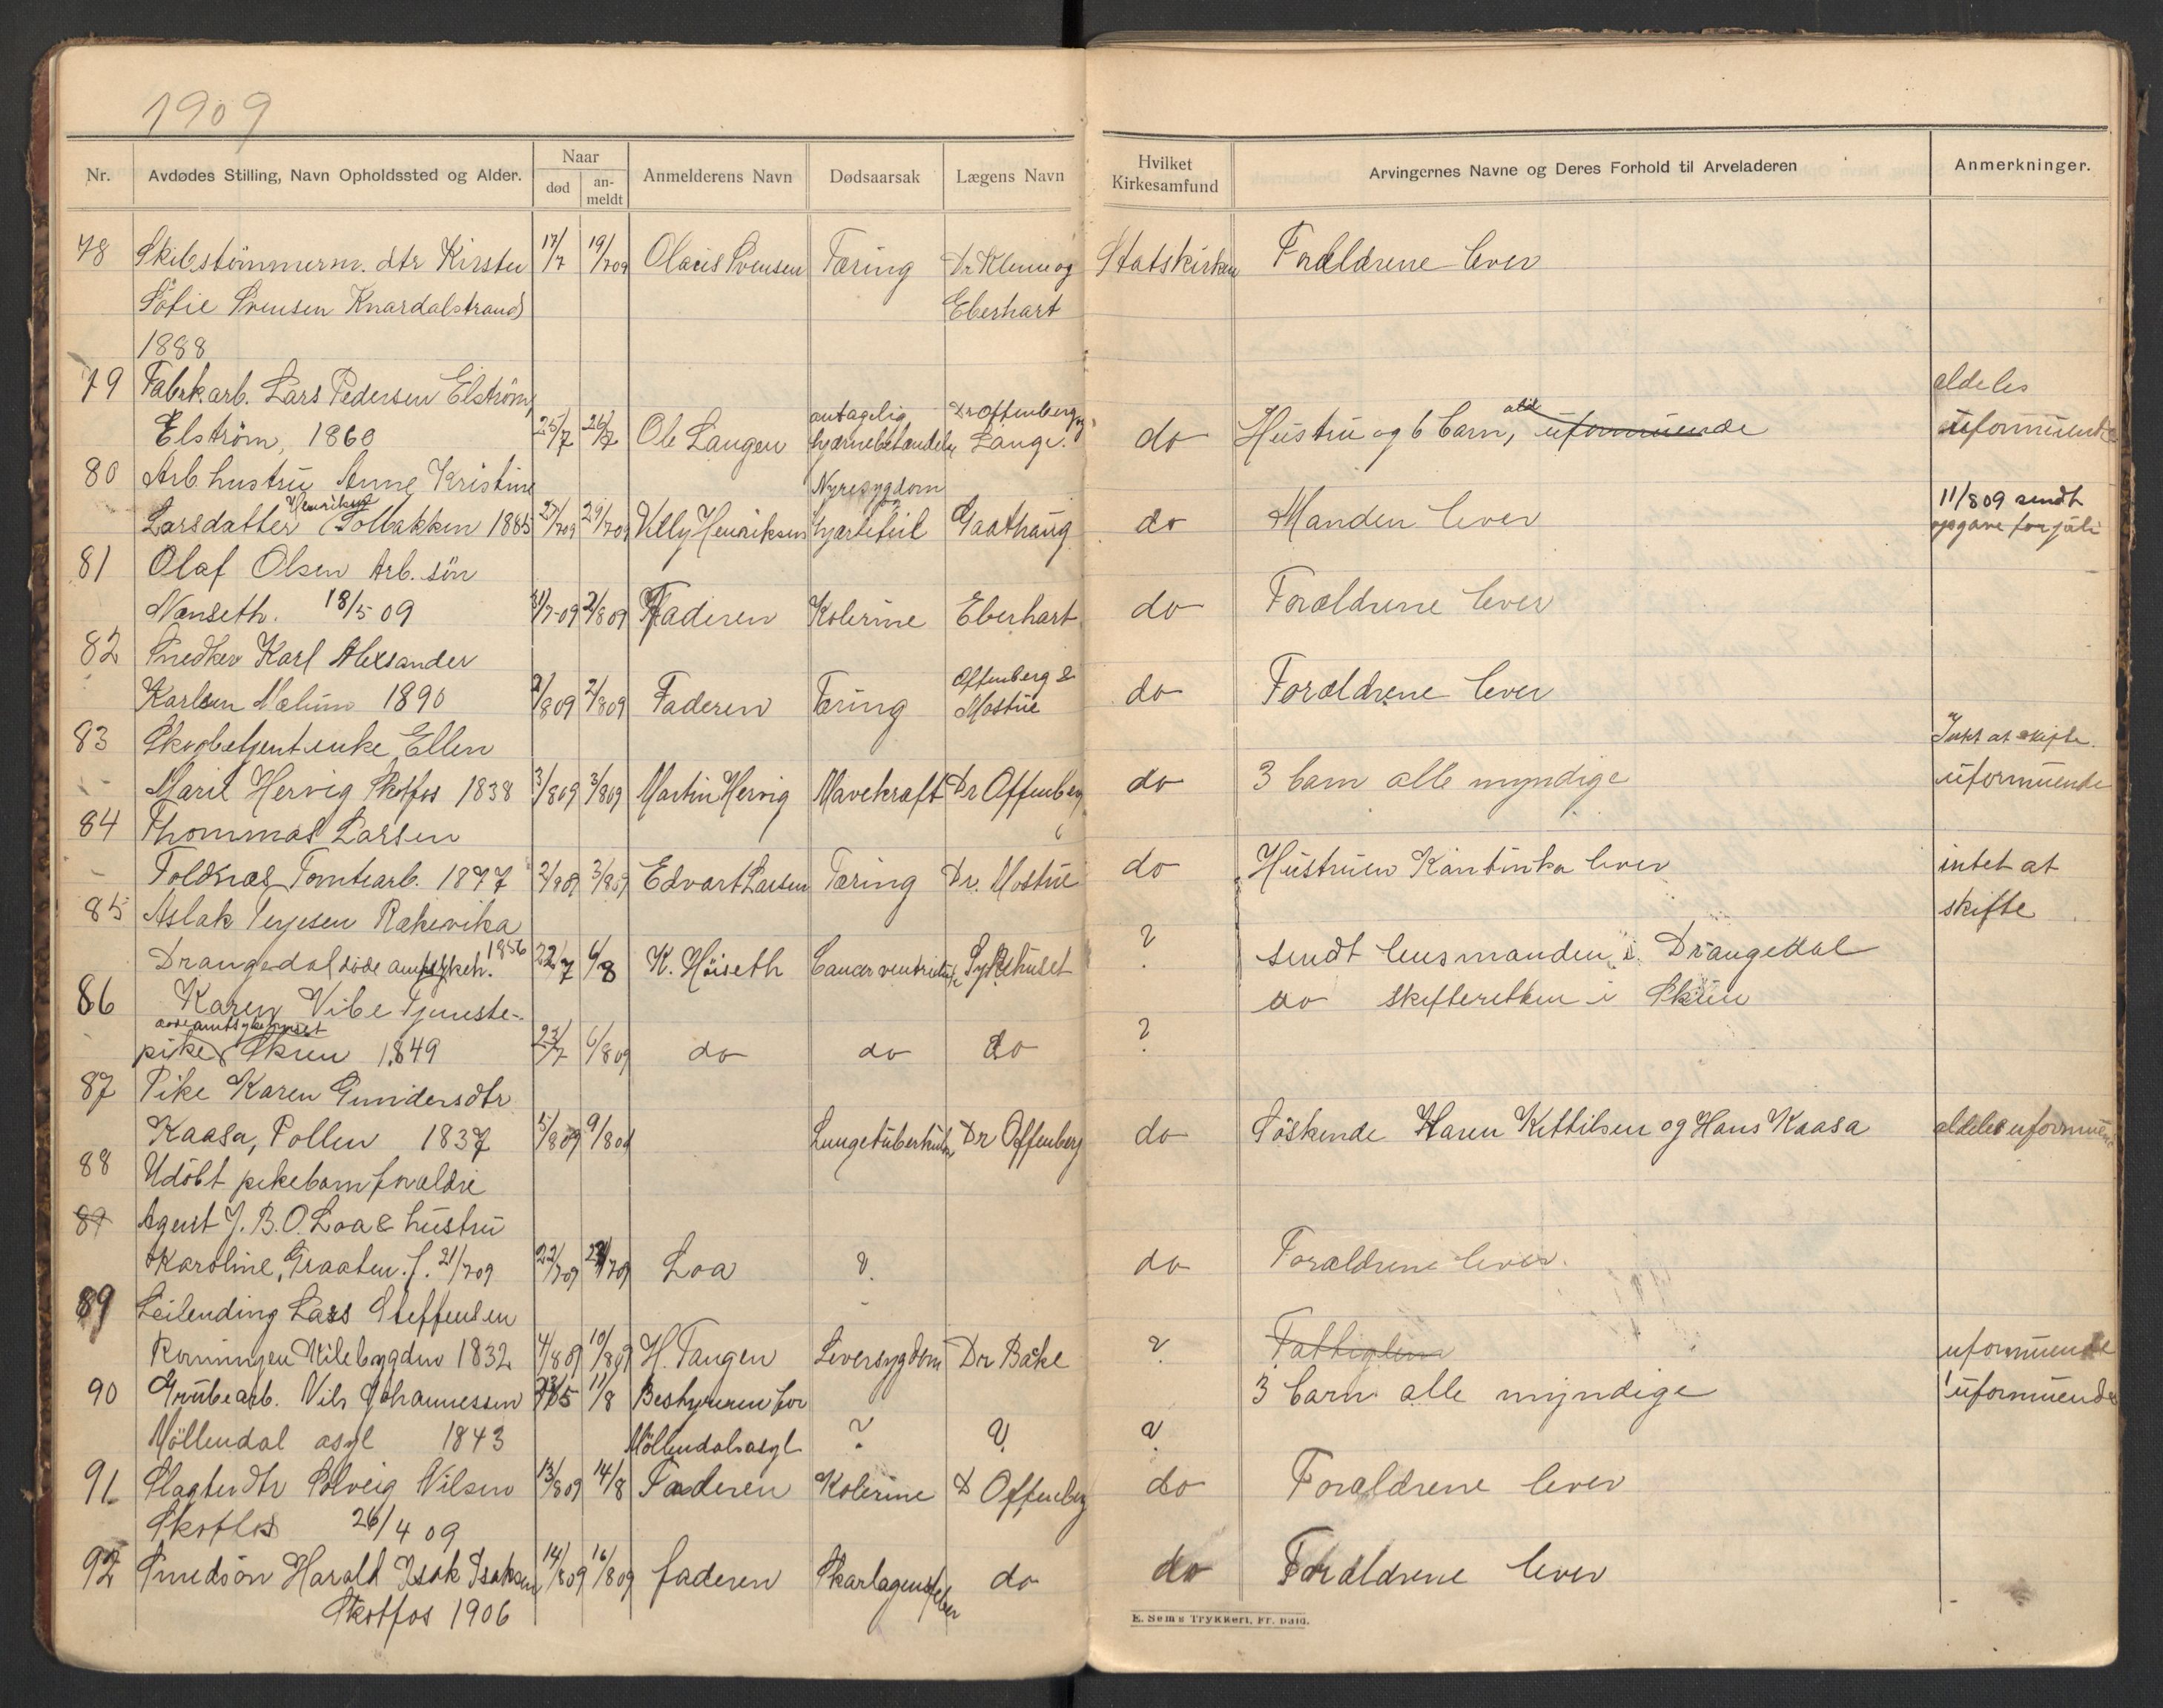 1909
Nr. Avdødes Stilling, Navn Opholdssted og Alder. Naar død an-meldt Anmelderens Navn Dødsaarsak Lægens Navn Hvilket Kirkesamfund Arvingernes Navne og Deres Forhold til Arveladeren Anmerkninger.
78 Skibstömmerm. dtr Kirsten 17/7 19/709 Olaus Svensen Tæring Dr Klem og Statskirken Forældrene lever
Sofie Svensen Knardalstrand Eberhart
1888
79 Fabrkarb. Lars Pedersen Elström, aldeles
Elström, 1860 25/7 26/7 Ole Langen antagelig hjernebetændelse Dr Offenberg og Lange. do Hustru og 6 barn, uformuende uformuende
80 Arb. hustru Anne Kristine Nyresygdom
Larsdatter Henriksen Solbakken 1885 27/709 29/709 Villy Henriksen hjertefeil Gaathaug do Manden lever 11/809 sendt opgave for juli
81 Olaf Olsen Arb. sön
Nenseth. 18/5 09 31/7-09 2/809 Faderen Kolerine Eberhart do Forældrene lever
82 Snedker Karl Alexsander
Karlsen Mælum 1890 2/809 Faderen Tæring Offenberg & Mostue do Forældrene lever
83 Skogbetjent enke Ellen Intet at skifte.
Marie Hervig Skotfos 1838 3/809 3/809 Martin Hervig Mavekraft Dr Offenberg do 3 barn alle myndige uformuende
84 Thommas Larsen
Foldnæs Tomtearb. 1877 2/809 3/809 Edvart Larsen Tæring Dr. Mostue do Hustruen Kantinka lever intet at
85 Aslak Terjesen Rakevika skifte
Drangedal döde amtsykeh. 1856 22/7 6/8 K. Höiseth Cancer ventriculi Sykehuset ? sendt lensmanden i Drangedal
86 Karen Vibe Tjeneste- do skifteretten i Skien
pike Skien 1849 döde amtsykehuset 23/7 6/809 do do do ?
87 Pike Karen Gundersdtr
Kaasa, Pollen 1837 5/809 9/809 Lungetuberkulose Dr Offenberg do Söskende Karen Kittilsen og Hans Kaasa aldeles uformuende
88 Udöbt pikebarn forældre
89 Agent J. B. O. Loa & hustru
Karoline, Graaten. f. 21/709 22/709 Loa ? do Forældrene lever.
89 Leilending Lars Steffensen
Rörningen Kilebygden 1832 4/809 10/809 H. Tangen Leversygdom Dr Bakke ? Fattiglem uformuende
90 Grubearb. Nils Johannessen 11/8 Bestyreren for 3 barn alle myndige uformuende
Möllendal asyl 1843 Möllendal asyl ? ? ?
91 Slagter dtr Solveig Nilsen 13/809 14/8 Faderen Kolerine D Offenberg do Forældrene lever
Skotfos 26/4 09
92 Smedsön Harald Isak Isaksen 14/809 16/809 faderen Skarlagensfeber do do Forældrene lever
Skotfos 1906
E. Sems Trykkeri, Fr. hald.